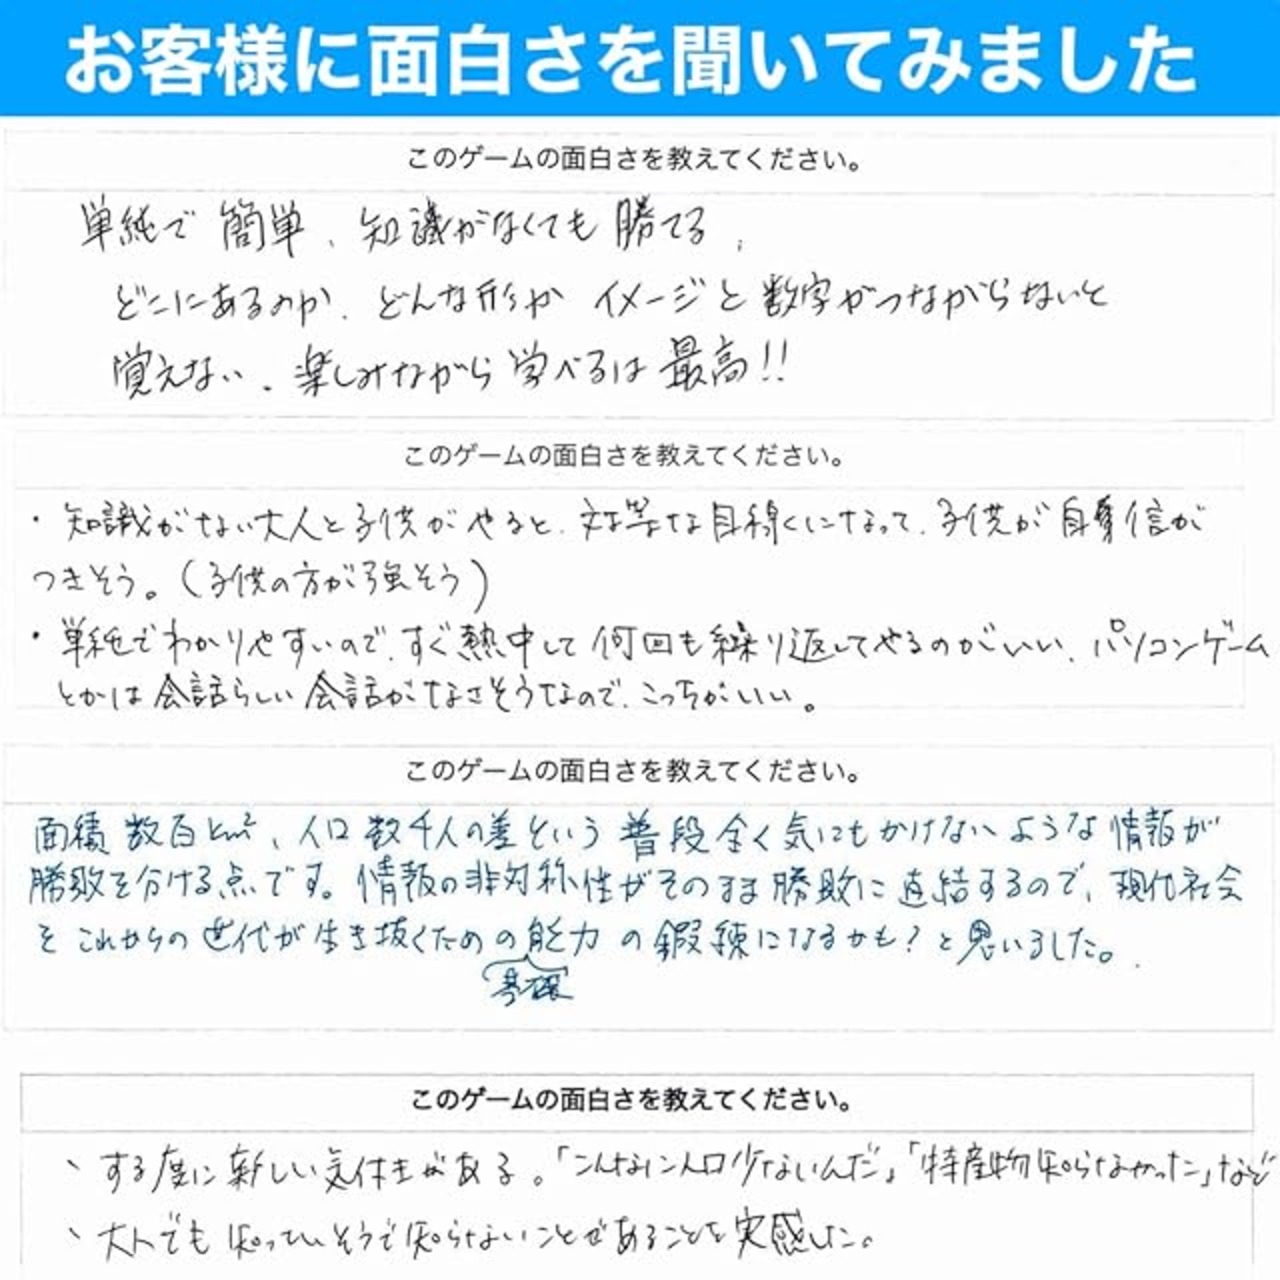 お客様に面白さを聞いてみました
このゲームの面白さを教えてください。
単純で簡単、知識がなくても勝てる、
どこにあるのか、どんな形か イメージと数字がつながらないと
覚えない。楽しみながら学べるは最高!!
このゲームの面白さを教えてください。
・知識がない大人と子供がやると、対等な目線くになって、子供が自信が
つきそう。(子供の方が強そう)
・単純でわかりやすいので、すぐ熱中して何回も繰り返してやるのがいい、パソコンゲーム
とかは会話らしい会話がなさそうなので、こっちがいい。
このゲームの面白さを教えてください。
面積数百km²、人口数千人の差という普段全く気にもかけないような情報が
勝敗を分ける点です。情報の非対称性がそのまま勝敗に直結するので、現代社会
をこれからの世代が生き抜くための能力の鍛練になるかも?と思いました。
基礎
このゲームの面白さを教えてください。
、する度に新しい気付きがある。「こんなに人口少ないんだ」「特産物知らなかった」など
、大人でも知っていそうで知らないことがあることを実感した。